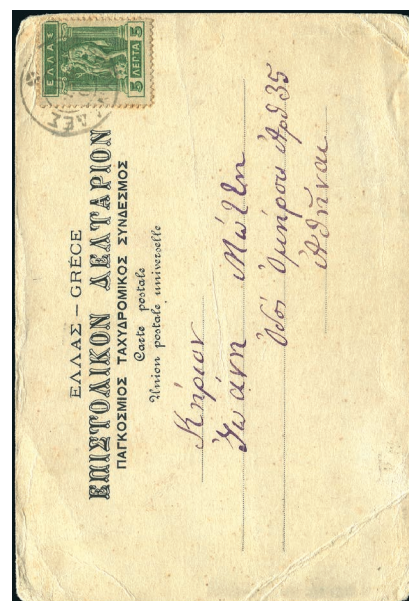 ΕΛΛΑΣ
5 ΛΕΠΤΑ 5
ΕΛΛΑΣ – GRÈCE
ΕΠΙΣΤΟΛΙΚΟΝ ΔΕΛΤΑΡΙΟΝ
ΠΑΓΚΟΣΜΙΟΣ ΤΑΧΥΔΡΟΜΙΚΟΣ ΣΥΝΔΕΣΜΟΣ
Carte postale
Union postale universelle
Κήριον
Ἰωάνη
Ὁδός Ὁμήρου Ἀρθ 35
Ἀθήναι